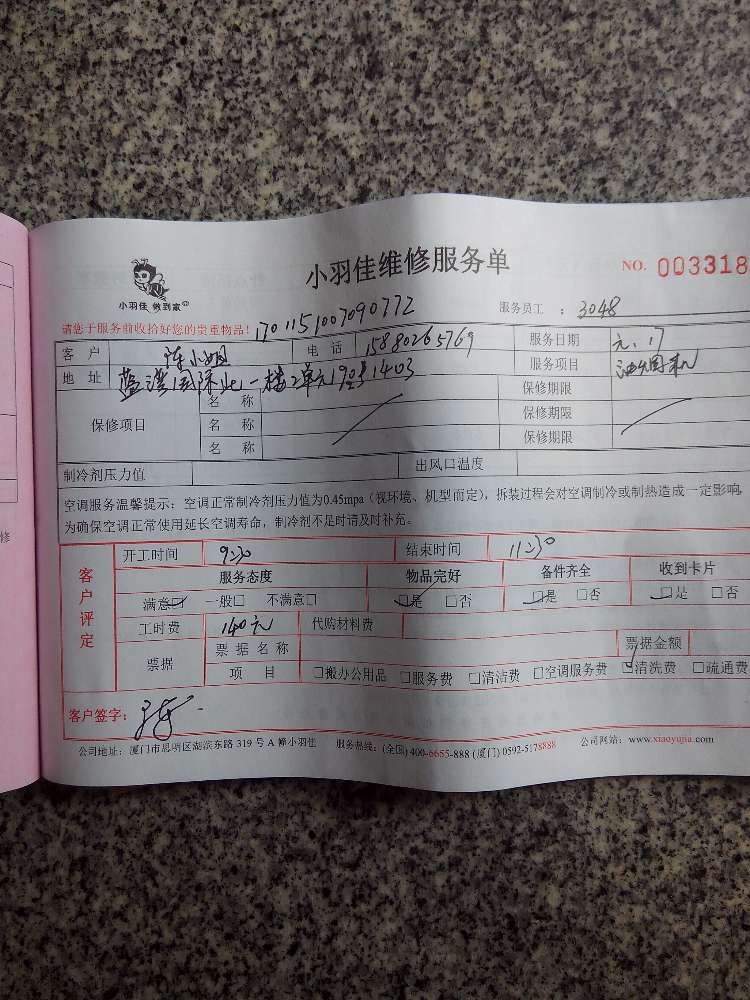 小羽佳维修服务单
NO. 003318
小羽佳 做到家
服务员工 : 3048
请您于服务前收拾好您的贵重物品! 1701151007090772
客 户 陈小姐 电 话 15880265769 服务日期 元.17
地 址 1403 服务项目 油烟机
保修项目 名 称 保修期限
名 称 保修期限
名 称 保修期限
制冷剂压力值 出风口温度
空调服务温馨提示：空调正常制冷剂压力值为0.45mpa（视环境、机型而定），拆装过程会对空调制冷或制热造成一定影响
为确保空调正常使用延长空调寿命，制冷剂不足时请及时补充。
客户评定
开工时间 9:30 结束时间 11:30
服务态度 物品完好 备件齐全 收到卡片
满意□ 一般□ 不满意□ □是 □否 □是 □否 □是 □否
工时费 140元 代购材料费
票据 票 据 名 称 票据金额
项 目 □搬办公用品 □服务费 □清洁费 □空调服务费 □清洗费 □疏通费
客户签字：
公司地址：厦门市思明区湖滨东路 319 号 A 幢小羽佳 服务热线：(全国) 400-6655-888 (厦门) 0592-5178888 公司网站：www.xiaoyujia.com
修